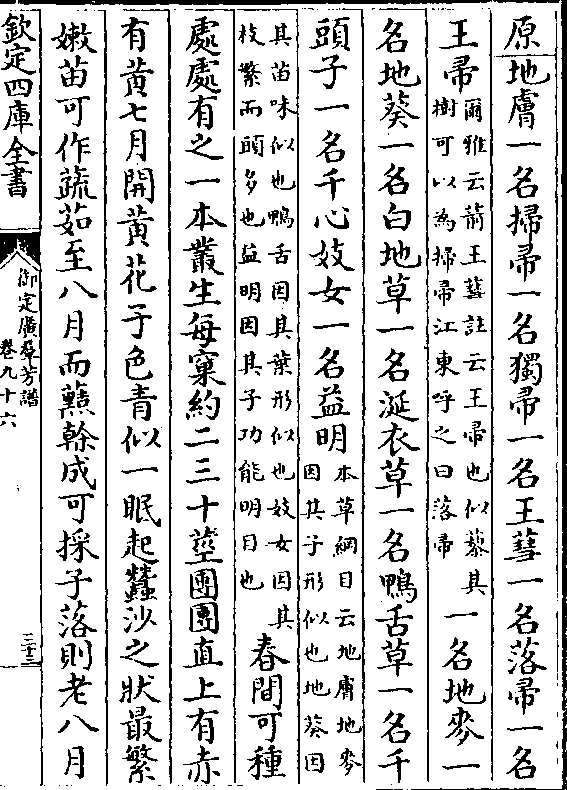 原地膚一名掃帚一名獨帚一名王蔧一名落帚一名
王帚爾雅云葥王蔧註云王帚也似藜其
樹可以為掃帚江東呼之曰落帚一名地麥一
名地葵一名白地草一名涎衣草一名鴨舌草一名千
頭子一名千心妓女一名益明本草綱目云地膚地麥
因其子形似也地葵因
其苗味似也鴨舌因其葉形似也妓女因其
枝繁而頭多也益明因其子功能明目也春間可種
處處有之一本叢生每窠約二三十莖團團直上有赤
有黄七月開黄花子色青似一眠起蠶沙之狀最繁
嫩苗可作蔬茹至八月而䕽幹成可採子落則老八月
欽定四庫全書
御定廣羣芳譜
卷九十六
三十三